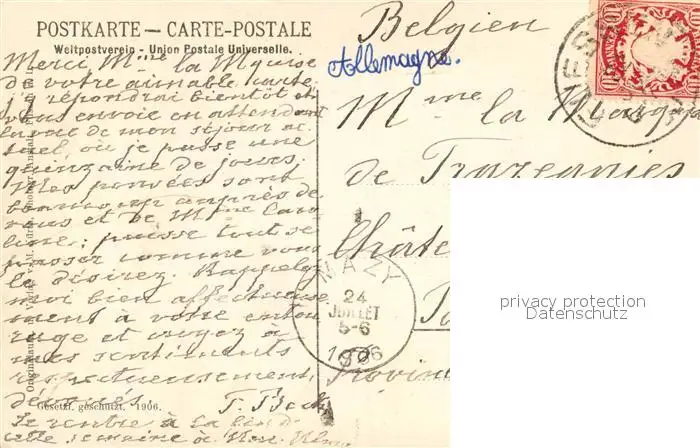 POSTKARTE — CARTE-POSTALE
Weltpostverein - Union Postale Universelle.
Belgien
Allemagne.
Merci Mme la Mquise
de votre aimable carte
j'y répondrai bientôt et
vous envoie en attendant
la vue de mon séjour ac-
tuel, où je passe une
quinzaine de jours.
Mes pensées sont
beaucoup auprès de
vous et de Mme Caro
line; puisse tout se
passer comme vous
le désirez. Rappelez
moi bien affectueuse
ment à votre entou
rage et croyez à
mes sentiments
respectueusement
dévoués.
Je rentre à la fin de
cette semaine à
Mme la Marq
de Trazegnies
Châte
Provin
MAZY
24
JUILLET
5-6
1906
Gesetzl. geschützt. 1906.
10
privacy protection
Datenschutz